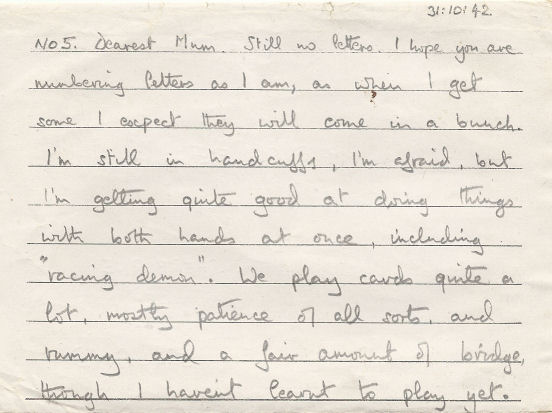 31:10:42
No 5. Dearest Mum. Still no letters. I hope you are
numbering letters as I am, as when I get
some I expect they will come in a bunch.
I'm still in handcuffs, I'm afraid, but
I'm getting quite good at doing things
with both hands at once, including
"racing demon". We play cards quite a
lot, mostly patience of all sorts, and
rummy, and a fair amount of bridge,
though I haven't learnt to play yet.